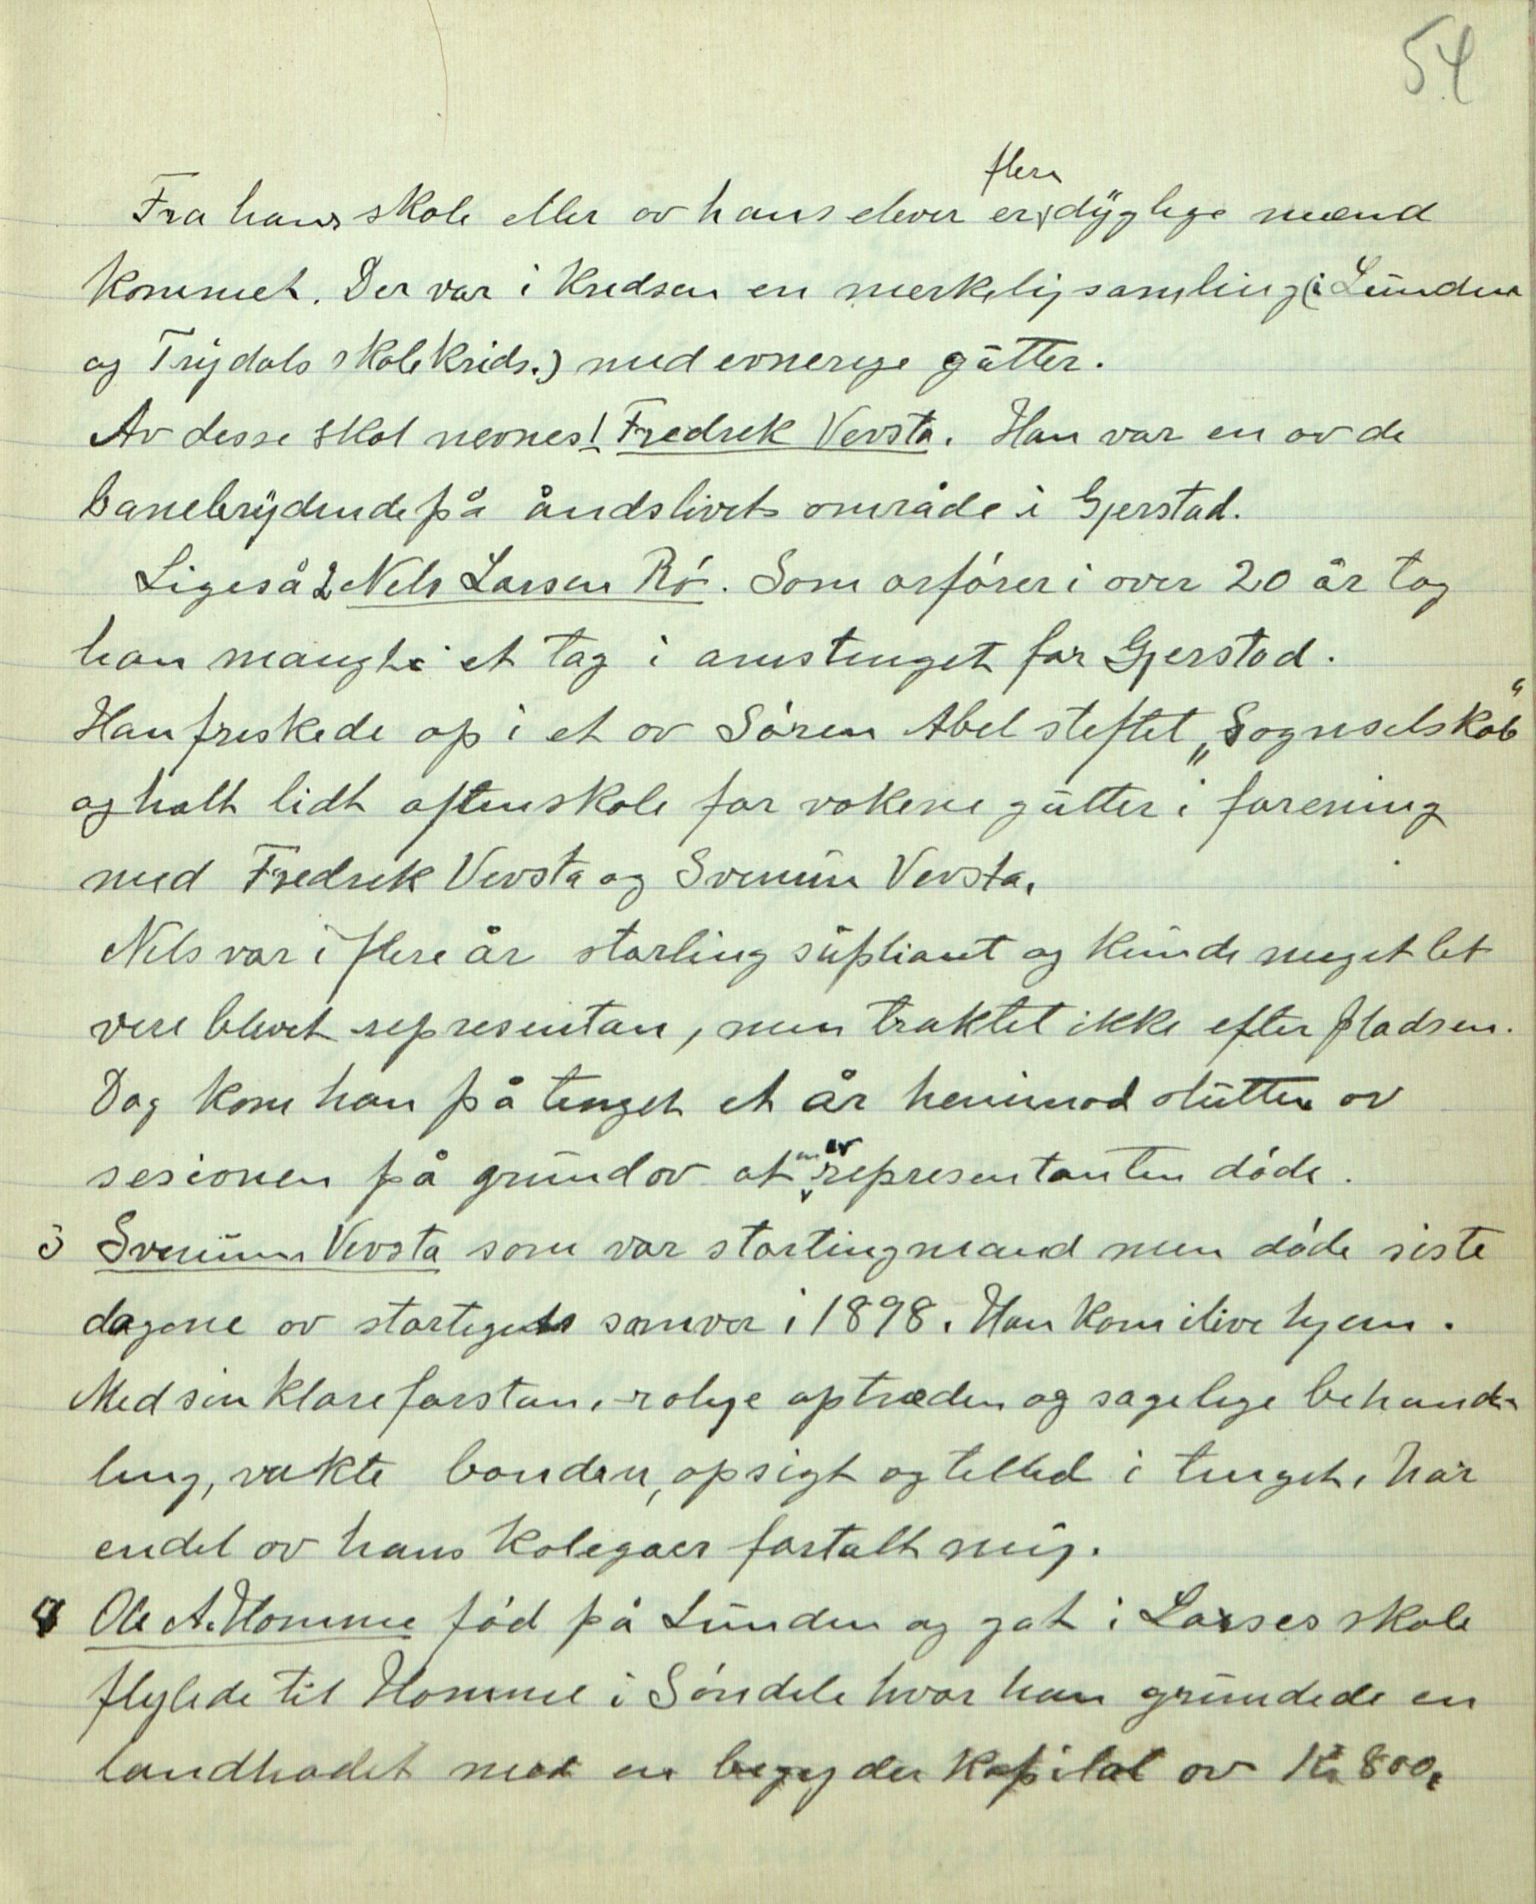 54
Fra hans skole eller av hans elever er flere dyglige mænd
kommet. Der var i kredsen en merkelig samling (i Lunden
og Trydals skolekrids.) med evnerige gutter.
Av desse skal nevnes 1 Fredrek Vevsta. Han var en av de
banebrydende på åndslivets område i Gjerstad.
Ligeså 2 Nels Larsen Rø. Som orfører i over 20 år tog
han mangt i et tag i amstinget for Gjerstad.
Han friskede op i et av Søren Abel steftet „Sogneselskab“
og halt lidt aftenskole for vokene gutter i forening
med Fredrek Vevsta og Svenum Vevsta.
Nels var i flere år storting supliant og kunde meget let
vere blevet representan, men traktet ikke efter pladsen.
Dog kom han på tinget et år henimod slutten av
sesionen på grund av at en av representanten døde.
3 Svenum Vevsta som var stortingmand men døde siste
dagene av stortigets samver i 1898. Han kom ilive hjem.
Med sin klare forstan, rolige optræden og sagelige behand-
ling, vakte bonden, opsigt og tilled i tinget, har
endel av hans kolegaer fortalt mig.
4 Ole A. Homme fød på Lunden og gat i Larses skole
flyttede til Homme i Søndele hvor han grundede en
landhadel med en begynder kapital av Kr 800.